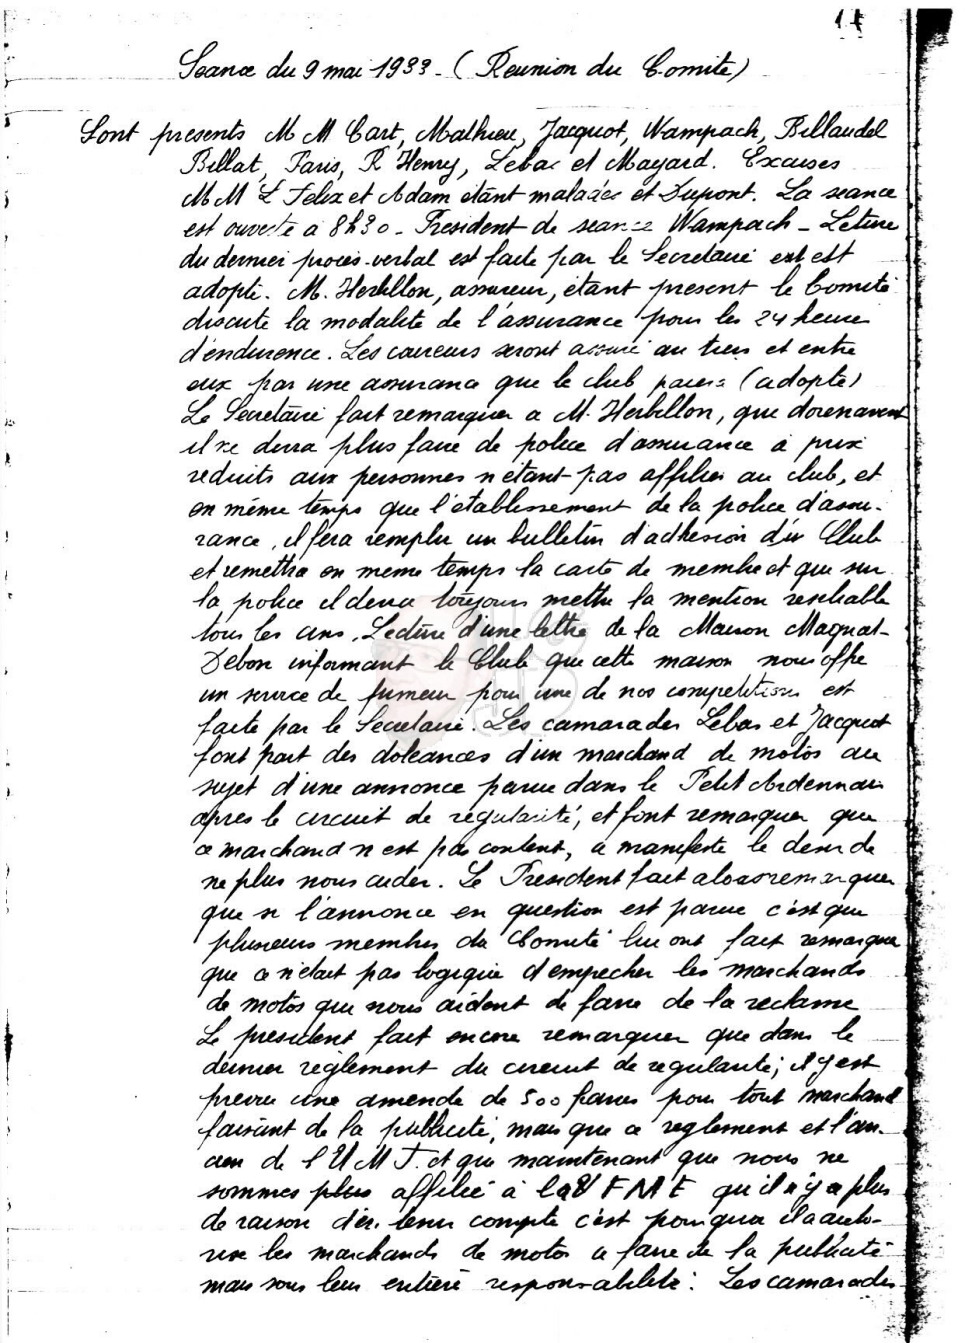 17
Seance du 9 mai 1933 - (Reunion du Comite)
Sont presents M M Cart, Mathieu, Jacquot, Wampach, Billaudel
Billat, Paris, R Henry, Lebas et Mayard. Excuses
M M L Felix et Adam étant malades et Dupont. La seance
est ouverte a 8h30 - President de seance Wampach - Lecture
du dernier proces-verbal est faite par le Secretaire est
adopté. M. Herbillon, assureur, étant present le Comité
discute la modalité de l'assurance pour les 24 heures
d'endurence. Les coureurs seront assuré au tiers et entre
eux par une assurance que le club paiera (adopté)
Le Secretaire fait remarquer a M. Herbillon, que dorenavent
il ne devra plus faire de police d'assurance à prix
reduits aux personnes n'étant pas affilies au club, et
en même temps que l'établissement de la police d'assu-
rance, il fera remplir un bulletin d'adhesion du Club
et remettra en meme temps la carte de membre et que sur
la police il devra toujours mettre la mention resiliable
tous les ans. Lecture d'une lettre de la Maison Magnat-
Debon informant le Club que cette maison nous offre
un service de fumeur pour une de nos competitions est
faite par le Secretaire. Les camarades Lebas et Jacquot
font part des doléances d'un marchand de motos au
sujet d'une annonce parue dans le Petit Ardennais
apres le circuit de régularité, et font remarquer que
ce marchand n'est pas content, a manifeste le desir de
ne plus nous aider. Le President fait alors remarquer
que si l'annonce en question est parue c'est que
plusieurs membres du Comité lui ont fait remarquer
que ce n'était pas logique d'empecher les marchands
de motos qui nous aident de faire de la reclame
Le president fait encore remarquer que dans le
dernier règlement du circuit de regularité, il y est
prevu une amende de 500 francs pour tout marchand
faisant de la publicité, mais que ce reglement est l'an-
cien de l'U M F. et que maintenant que nous ne
sommes plus affilié à la U F M E qu'il n'y a plus
de raison d'en tenir compte c'est pourquoi il a auto-
rise les marchands de motos a faire de la publicité
mais sous leur entière responsabilité. Les camarades